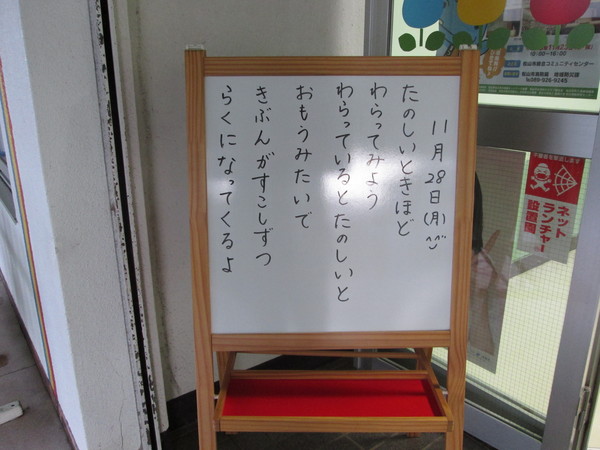 11月28日(月)
たのしいときほど
わらってみよう
わらっているとたのしいと
おもうみたいで
きぶんがすこしずつ
らくになってくるよ
ネット
ランチャー
設置園